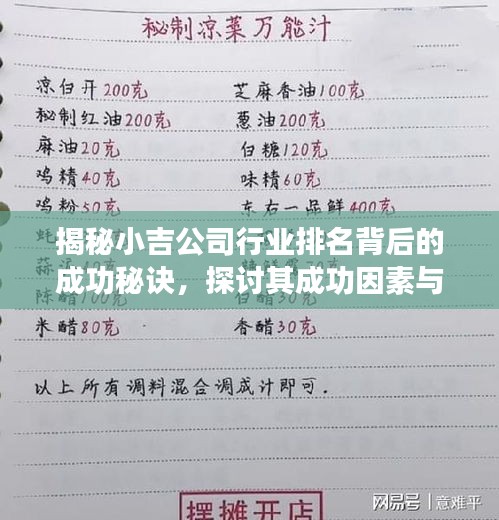 秘制凉菜万能汁
凉白开200克 芝麻香油100克
秘制红油200克 葱油200克
麻油20克 白糖120克
鸡精40克 味精60克
鸡粉50克 东古一品鲜400克
揭秘小吉公司行业排名背后的
成功秘诀，探讨其成功因素与
米醋80克 香醋30克
以上所有调料混合调成汁即可.
摆摊开店
网易号 | 意难平